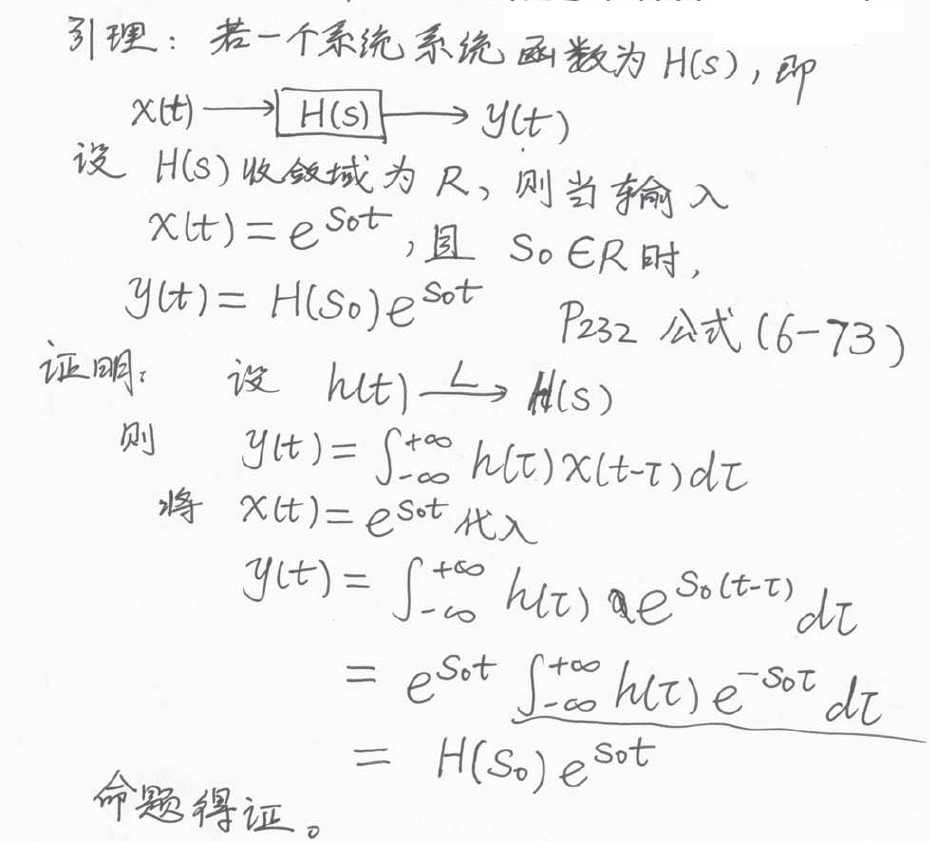 引理：若一个系统系统函数为H(s)，即
x(t) → H(s) → y(t)
设 H(s)收敛域为R，则当输入
x(t) = e^{s₀t}，且 s₀∈R时，
y(t) = H(s₀)e^{s₀t}
P232 公式(6-73)
证明： 设 h(t) \xrightarrow{L} H(s)
则 y(t) = ∫_{-∞}^{+∞} h(τ)x(t-τ)dτ
将 x(t) = e^{s₀t}代入
y(t) = ∫_{-∞}^{+∞} h(τ) e^{s₀(t-τ)} dτ
= e^{s₀t} ∫_{-∞}^{+∞} h(τ) e^{-s₀τ} dτ
= H(s₀) e^{s₀t}
命题得证。